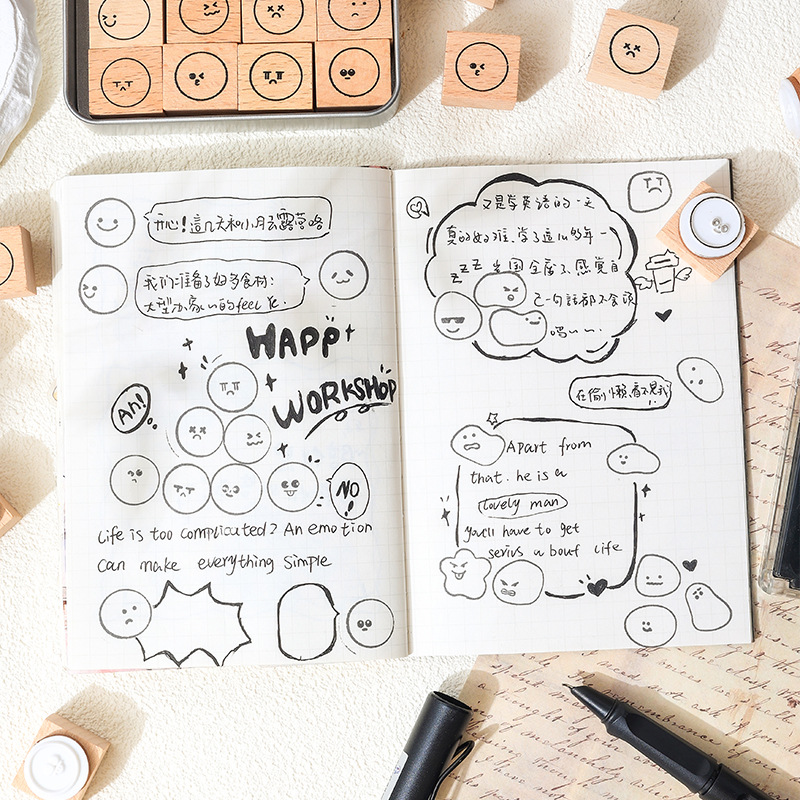 开心！這几天和小月去露营咯
我们准备了好多食材：
大型办家
的feel 。
HAPP
WORKSHOP
Ah!
NO!
Life is too complicated? An emotion
can make everything simple
又是学英语的一天
真的好难、学了这么多年一
zzz 全废了、感觉自
己一句話都不会
在偷懒,看不見我
Apart from
that. he is a
lovely man
you'll have to get
serivs a bout life